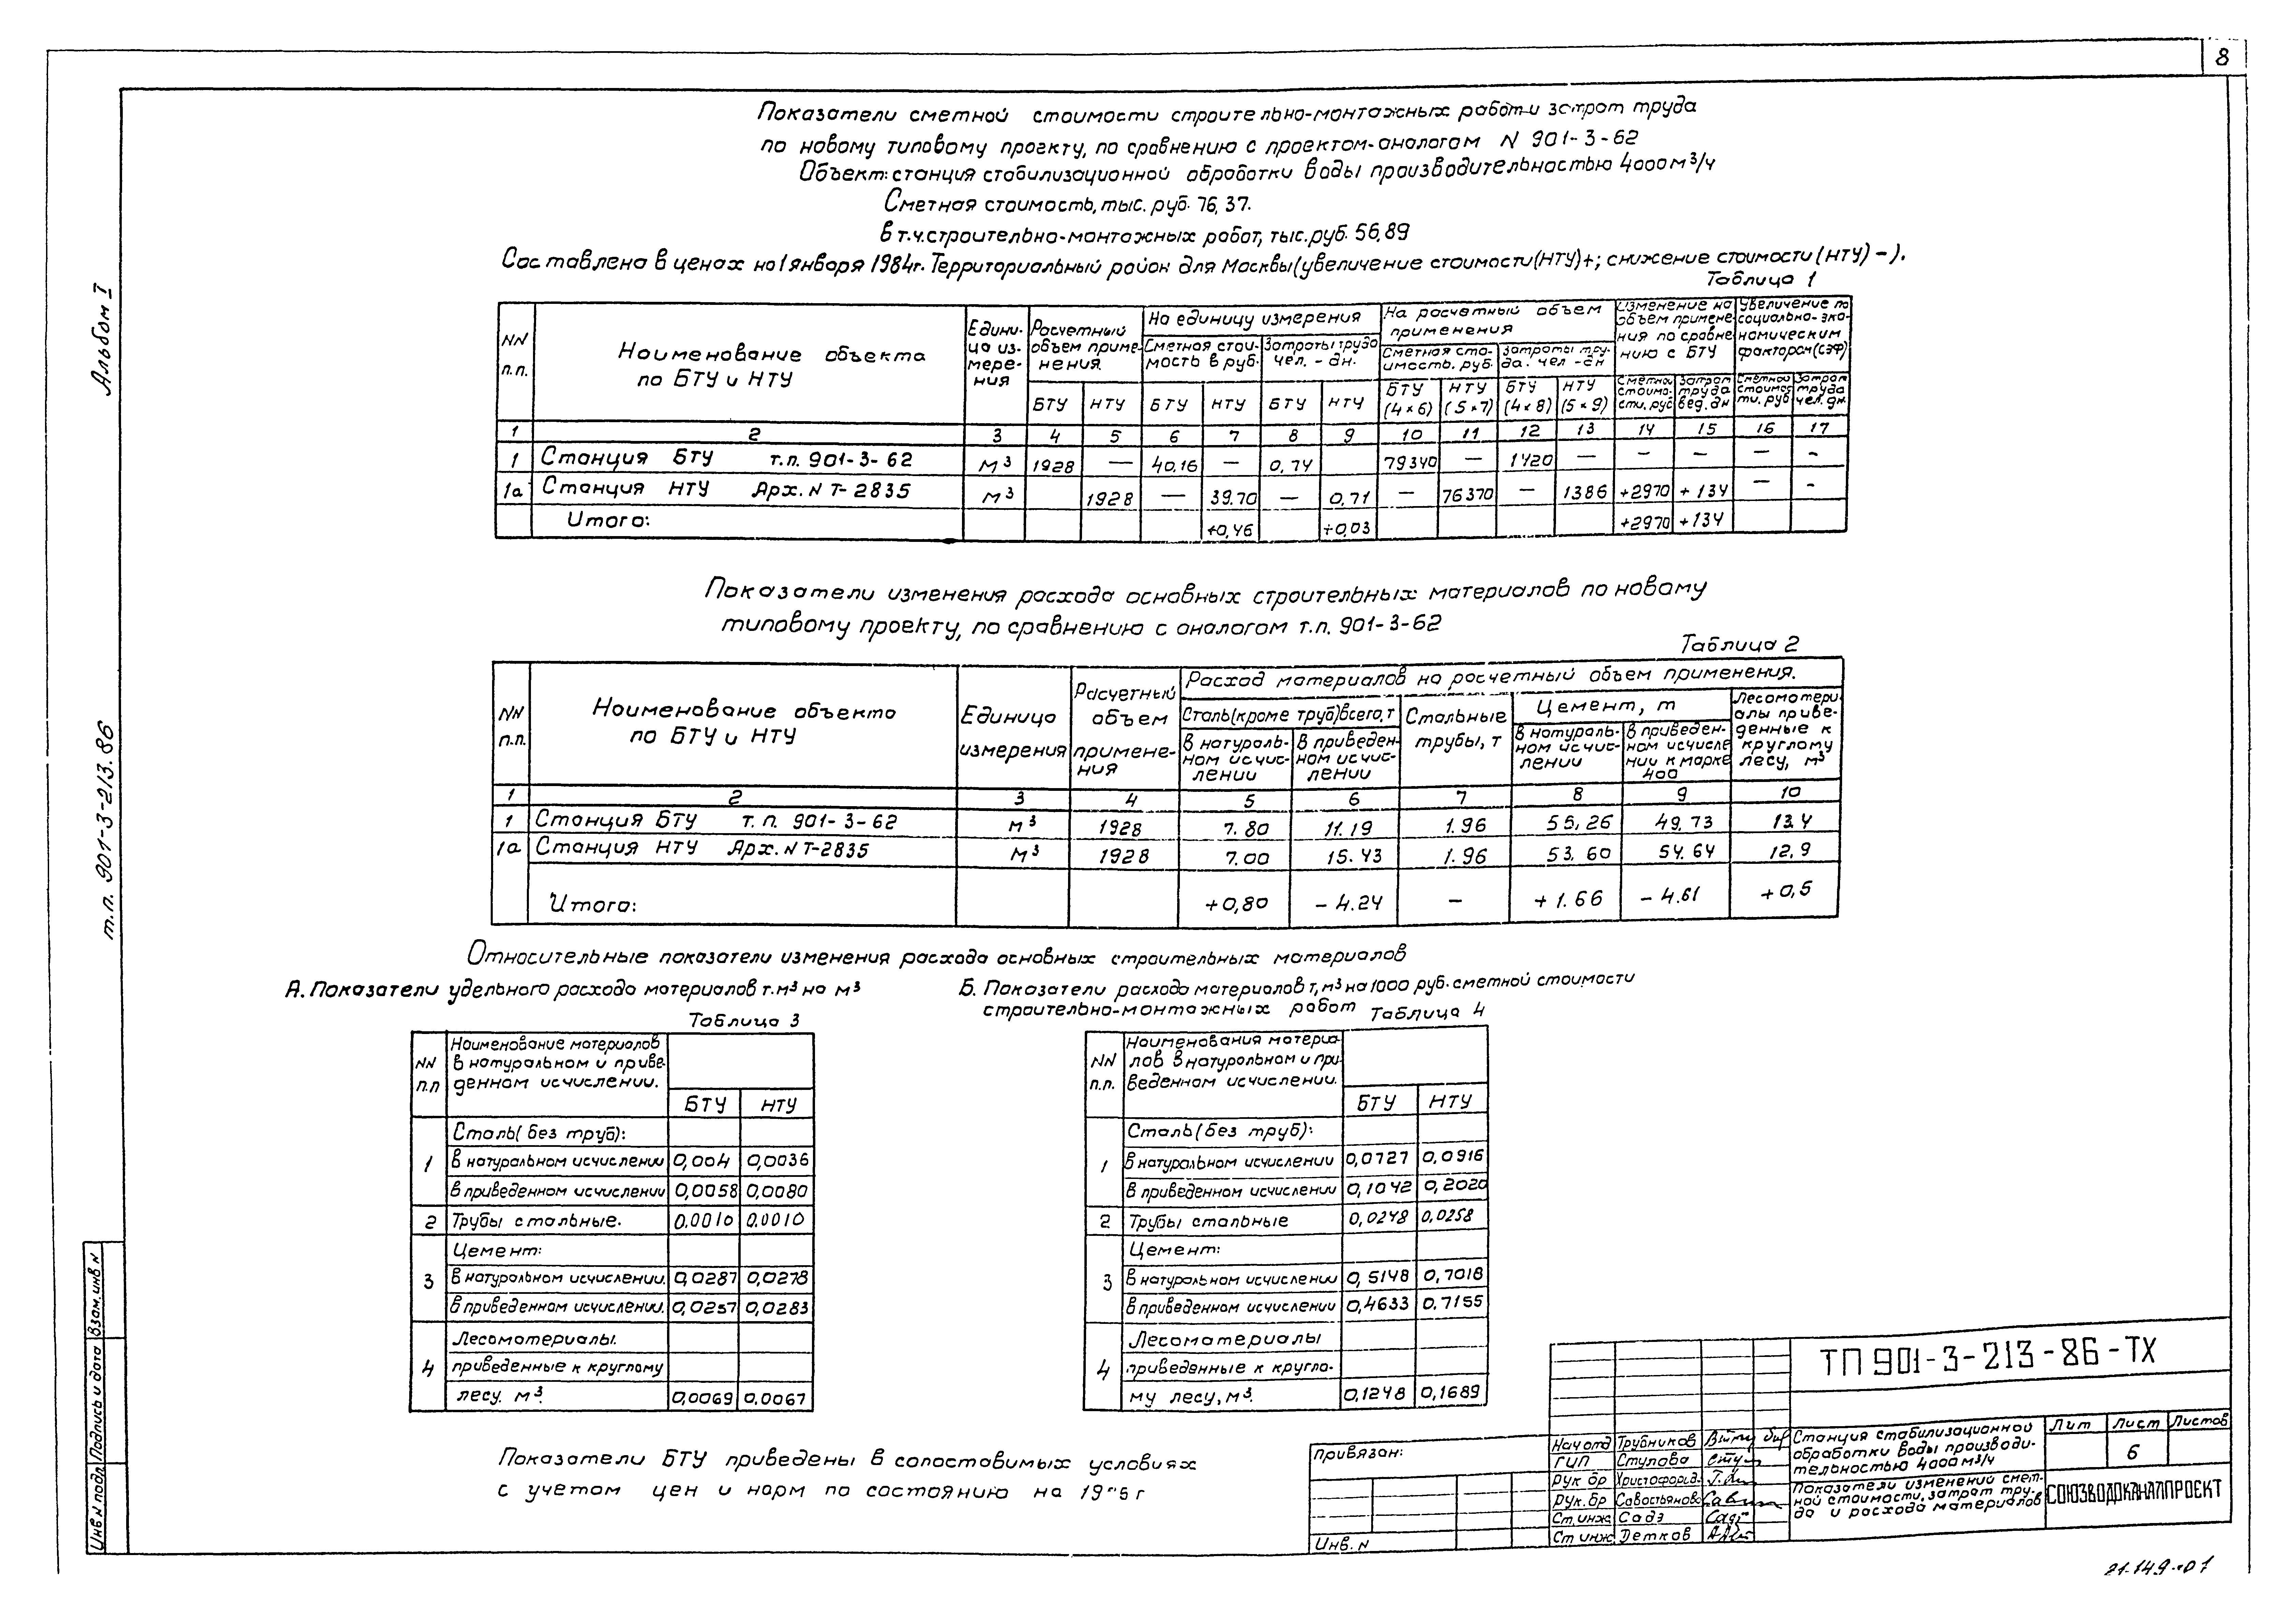 8
Альбом I
т.п. 901-3-213.86
Показатели сметной стоимости строительно-монтажных работ и затрат труда
по новому типовому проекту, по сравнению с проектом-аналогом N 901-3-62
Объект: станция стабилизационной обработки воды производительностью 4000 м³/ч
Сметная стоимость, тыс. руб. 76,37.
в т.ч. строительно-монтажных работ, тыс. руб. 56,89
Составлена в ценах на 1 января 1984г. Территориальный район для Москвы (увеличение стоимости (НТУ)+; снижение стоимости (НТУ) -).
Таблица 1
NN п.п. | Наименование объекта по БТУ и НТУ | Едини-ца из-мере-ния | Расчетный объем приме-нения. | На единицу измерения | На расчетный объем применения | Изменение на объем примене-ния по сравне-нию с БТУ | Увеличение по социально-эко-номическим факторам (СЭФ)
Сметная стои-мость в руб. | Затраты труда чел. - дн. | Сметная сто-имость. руб. | Затраты тру-да. чел - дн
БТУ | НТУ | БТУ | НТУ | БТУ | НТУ | БТУ (4×6) | НТУ (5×7) | БТУ (4×8) | НТУ (5×9) | Сметной стоимо-сти, руб | Затрат труда | Сметной стоимос-ти. руб | Затрат труда чел. дн.
1 | 2 | 3 | 4 | 5 | 6 | 7 | 8 | 9 | 10 | 11 | 12 | 13 | 14 | 15 | 16 | 17
1 | Станция БТУ т.п. 901-3-62 | м³ | 1928 | — | 40,16 | — | 0,74 | | 79340 | — | 1420 | — | — | — | — | -
1а | Станция НТУ Арх. N Т-2835 | м³ | | 1928 | — | 39.70 | — | 0,71 | — | 76370 | — | 1386 | +2970 | +134 | — | -
Итого: | +0,46 | +0,03 | +2970 | +134
Показатели изменения расхода основных строительных материалов по новому
типовому проекту, по сравнению с аналогом т.п. 901-3-62
Таблица 2
NN п.п. | Наименование объекта по БТУ и НТУ | Единица измерения | Расчетный объем примене-ния | Расход материалов на расчетный объем применения.
Сталь (кроме труб) всего, т | Стальные трубы, т | Цемент, т | Лесоматери-алы приве-денные к круглому лесу, м³
В натураль-ном исчис-лении | В приведен-ном исчис-лении | В натураль-ном исчис-лении | В приведен-ном исчисле-нии к марке 400
1 | 2 | 3 | 4 | 5 | 6 | 7 | 8 | 9 | 10
1 | Станция БТУ т.п. 901-3-62 | м³ | 1928 | 7.80 | 11.19 | 1.96 | 55,26 | 49.73 | 13.4
1а | Станция НТУ Арх. N Т-2835 | м³ | 1928 | 7.00 | 15.43 | 1.96 | 53.60 | 54.64 | 12,9
Итого: | +0,80 | -4.24 | — | +1.66 | -4.61 | +0,5
Относительные показатели изменения расхода основных строительных материалов
А. Показатели удельного расхода материалов т.м³ на м³
Таблица 3
NN п.п | Наименование материалов в натуральном и приве-денном исчислении. | БТУ | НТУ
1 | Сталь (без труб):
в натуральном исчислении | 0,004 | 0,0036
в приведенном исчислении | 0,0058 | 0,0080
2 | Трубы стальные. | 0,0010 | 0,0010
3 | Цемент:
в натуральном исчислении. | 0,0287 | 0,0278
в приведенном исчислении. | 0,0257 | 0,0283
4 | Лесоматериалы.
приведенные к круглому
лесу. м³. | 0,0069 | 0,0067
Б. Показатели расхода материалов т, м³ на 1000 руб. сметной стоимости
строительно-монтажных работ
Таблица 4
NN п.п. | Наименования материа-лов в натуральном и при-веденном исчислении. | БТУ | НТУ
1 | Сталь (без труб):
в натуральном исчислении | 0,0727 | 0,0916
в приведенном исчислении | 0,1042 | 0,2020
2 | Трубы стальные | 0,0248 | 0,0258
3 | Цемент:
в натуральном исчислении | 0,5148 | 0,7018
в приведенном исчислении | 0,4633 | 0,7155
4 | Лесоматериалы
приведенные к кругло-
му лесу, м³. | 0,1248 | 0,1689
Показатели БТУ приведены в сопоставимых условиях
с учетом цен и норм по состоянию на
Привязан:
Инв. N
ТП 901-3-213-86-ТХ
Нач отд Трубников
ГИП Ступова
Рук бр Христофорид.
Рук. бр Савостьянов
Ст. инж Садэ
Ст инж Детков
Станция стабилизационной
обработки воды производи-
тельностью 4000 м³/ч
Показатели изменений смет-
ной стоимости, затрат тру-
да и расхода материалов
Лит | Лист | Листов
6
СОЮЗВОДОКАНАЛПРОЕКТ
Инв N подл. | Подпись и дата | Взам. инв N
21-149-01